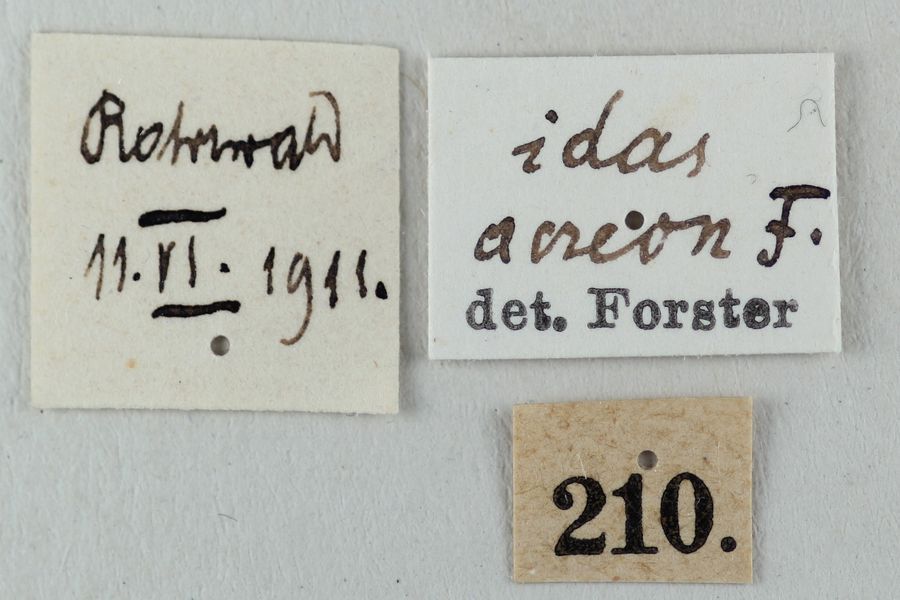 Rotwwald
11. VI. 1911.
idas
acreon F.
det. Forster
210.